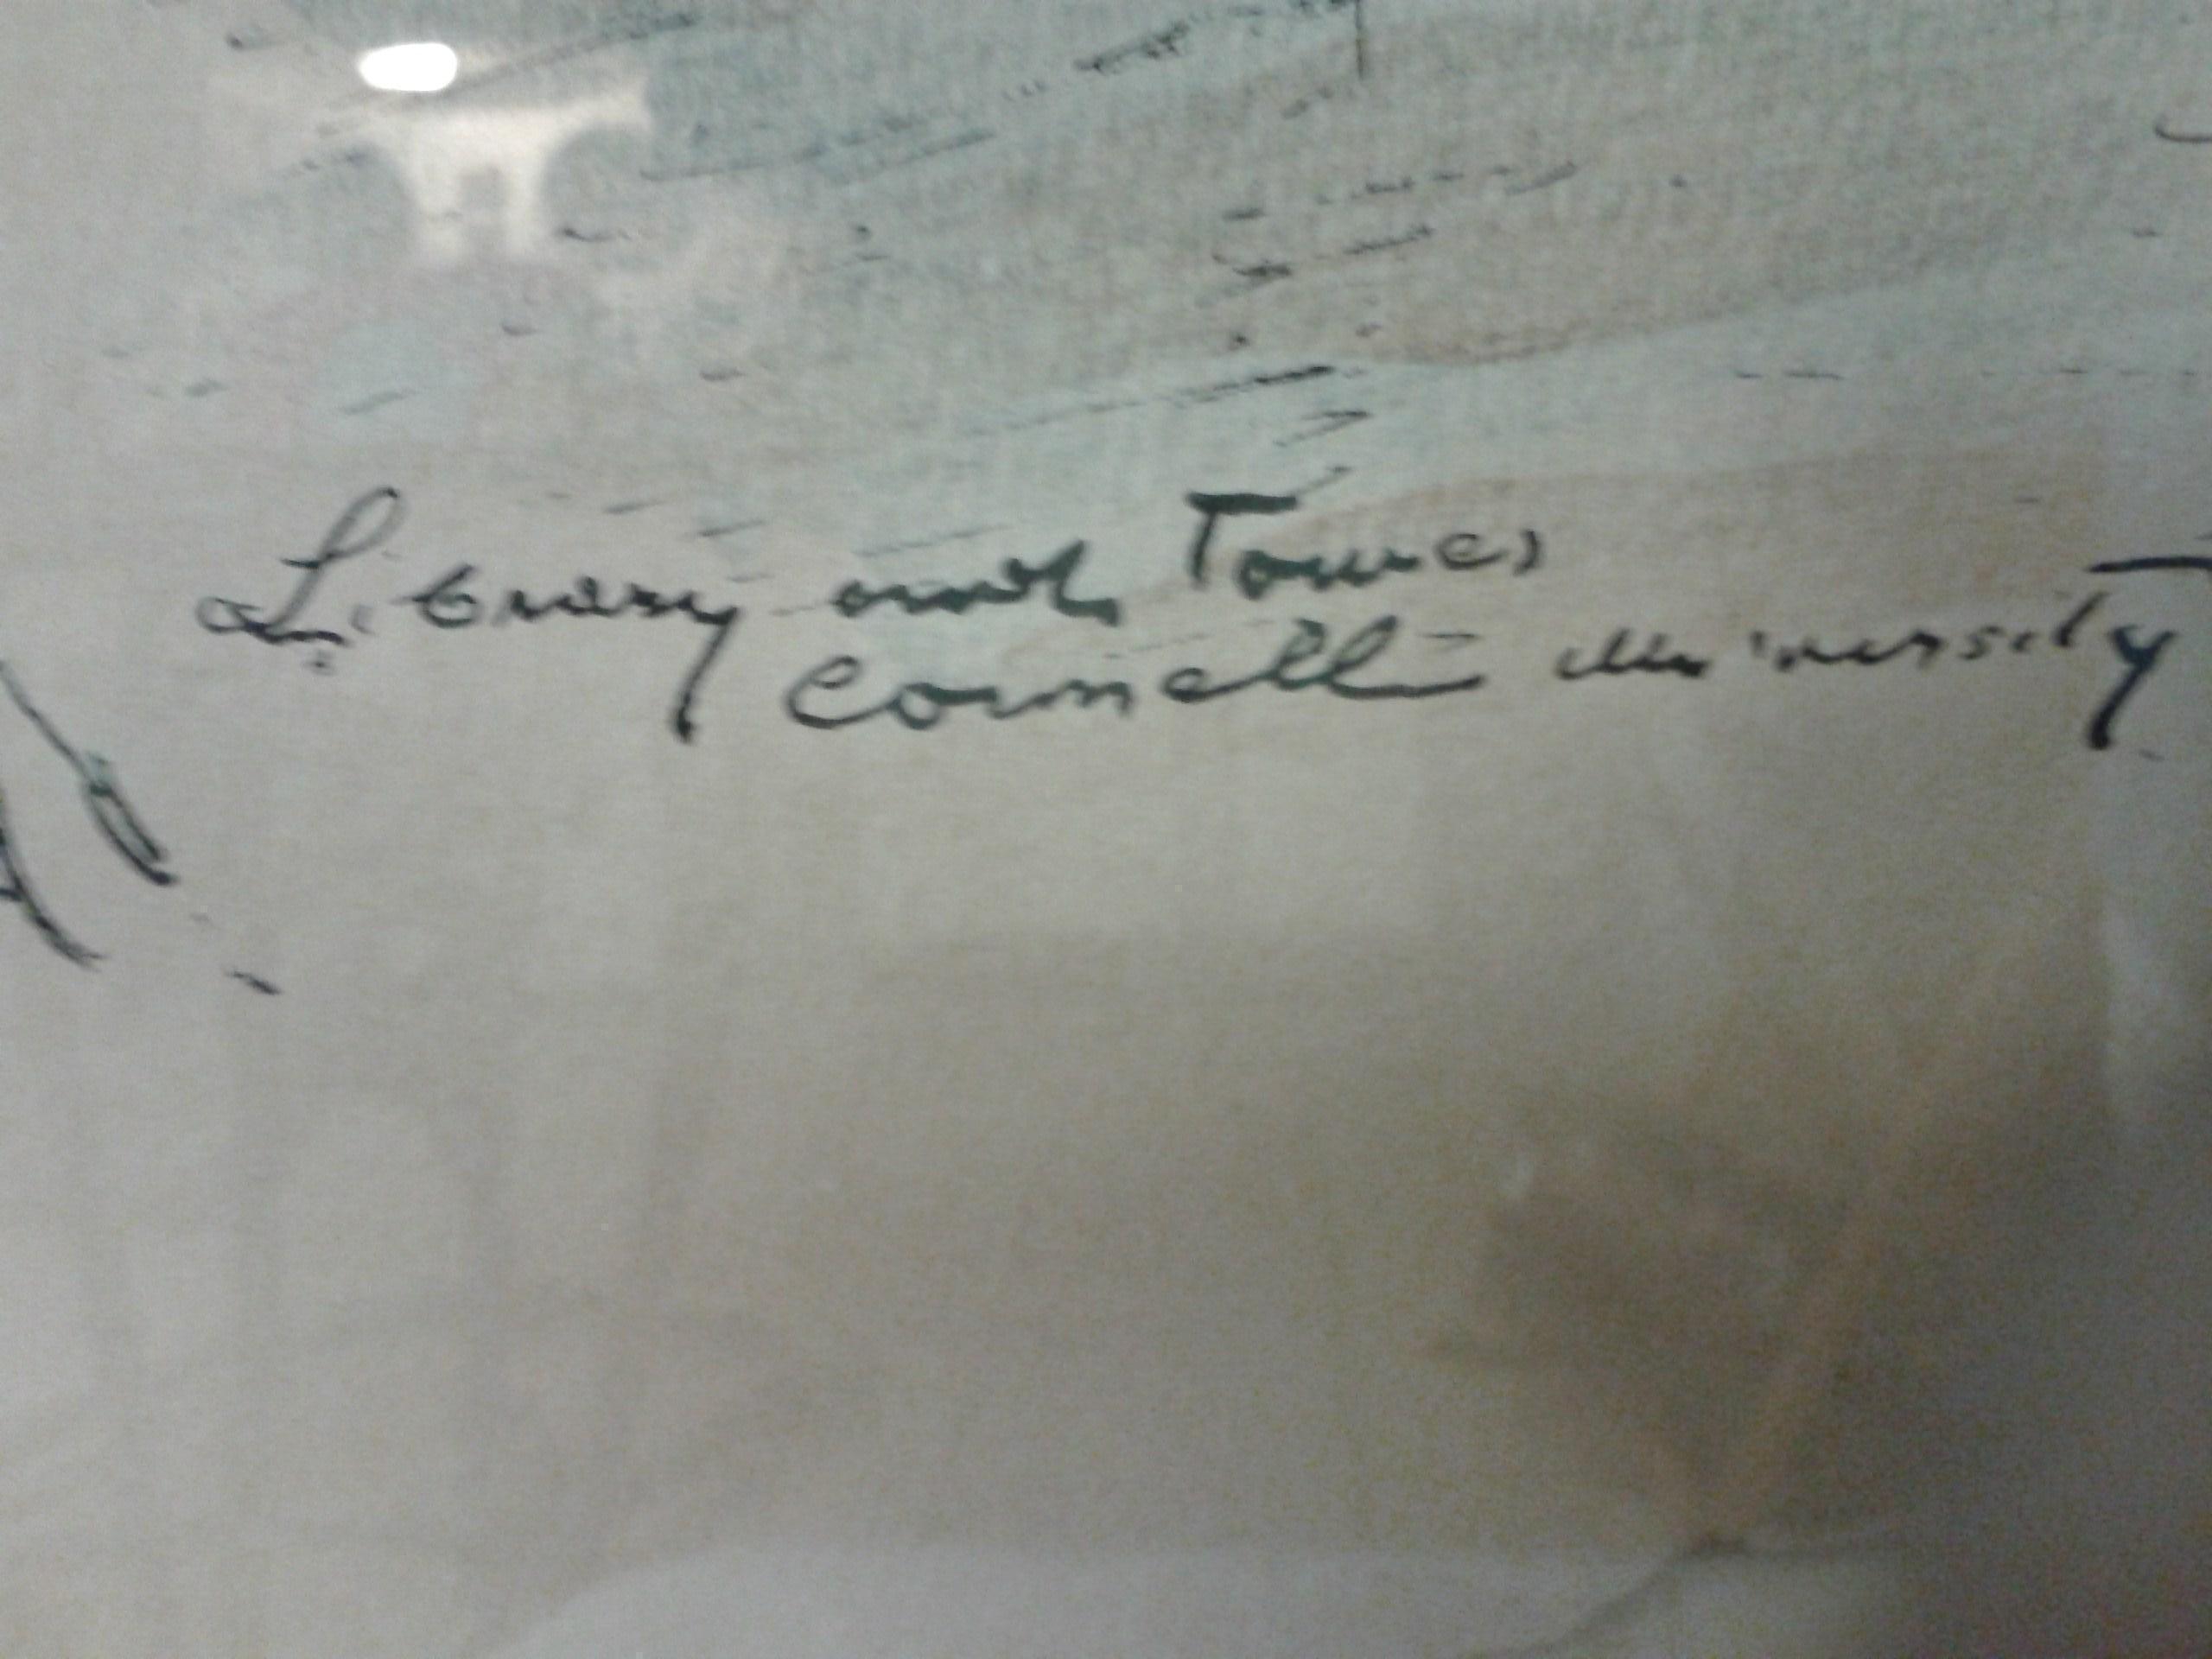 Library and Tower
Cornell University